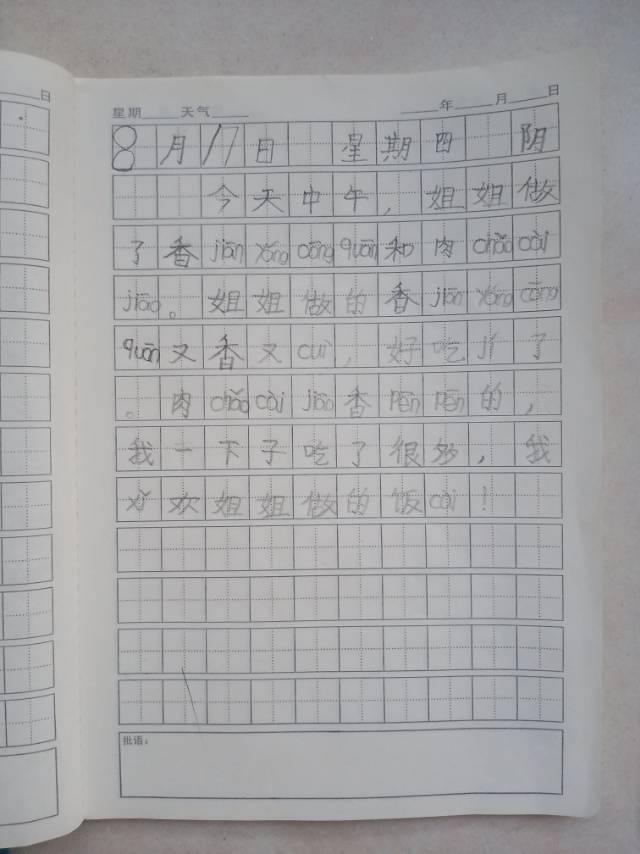 日
星期____天气____ ____年____月____日
8月17日 星期四 阴
今天中午，姐姐做
了香jiān yóng cōng quān和肉chǎo cài
jiāo。姐姐做的香jiān yóng cōng
quān又香又cuì，好吃jí了
。肉chǎo cài jiāo香pēn pēn的，
我一下子吃了很多，我
xǐ欢姐姐做的饭cài！
批语：